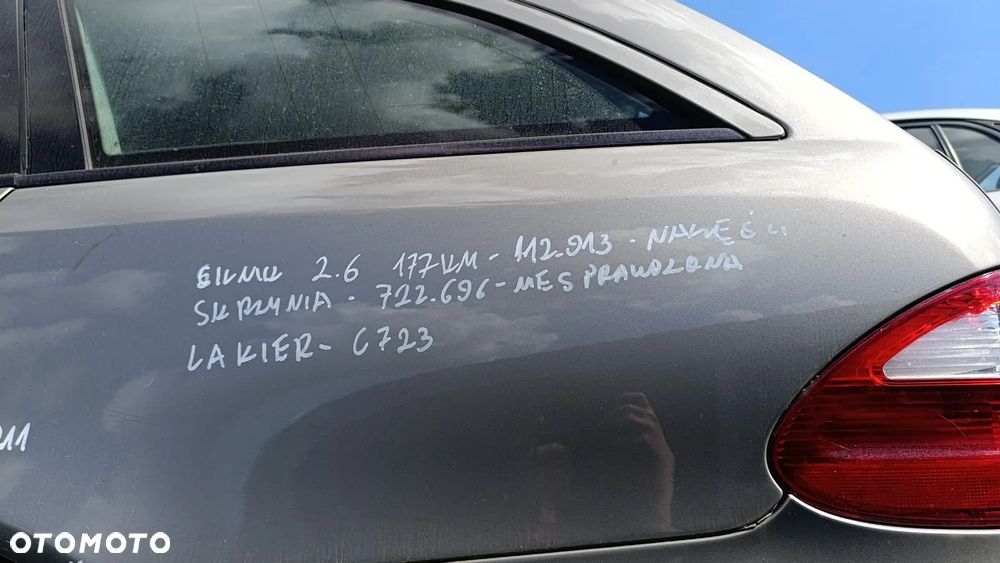 SILNIK 2.6 177KM - 112.913 - NA CZĘŚCI
SKRZYNIA - 722.696 - NIESPRAWDZONA
LAKIER - C723
211
OTOMOTO